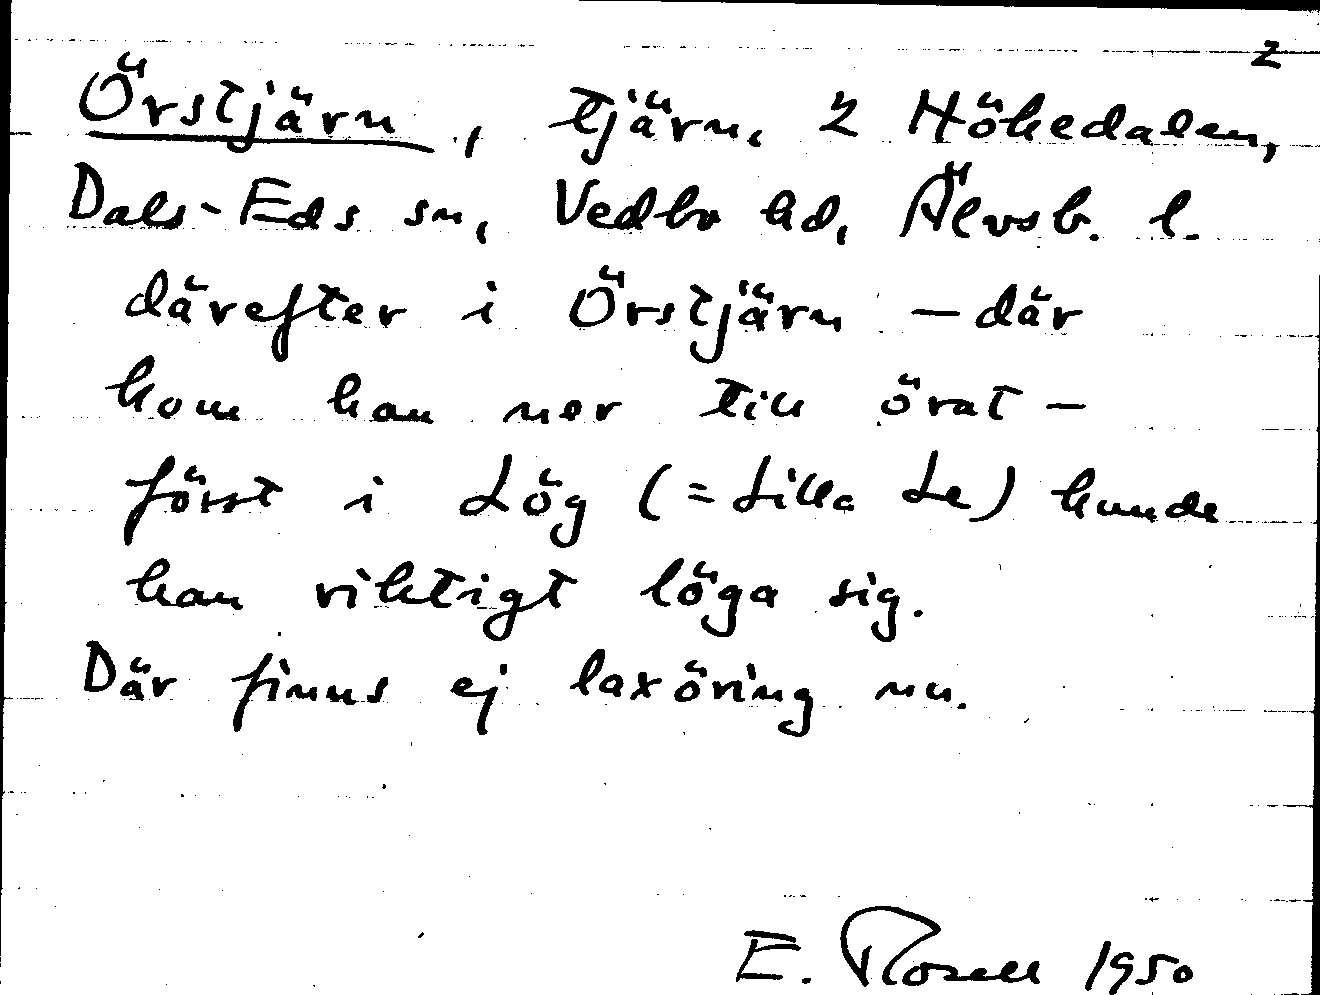 2
Örstjärn, tjärn, 2 Hökedalen,
Dals-Eds sn, Vedbo hd, Älvsb. l.
därefter i Örstjärn – där
kom han ner till örat –
först i Lög (= Lilla Le) kunde
han viktigt löga sig.
Där finns ej laxöring nu.
E. Rosell 1950